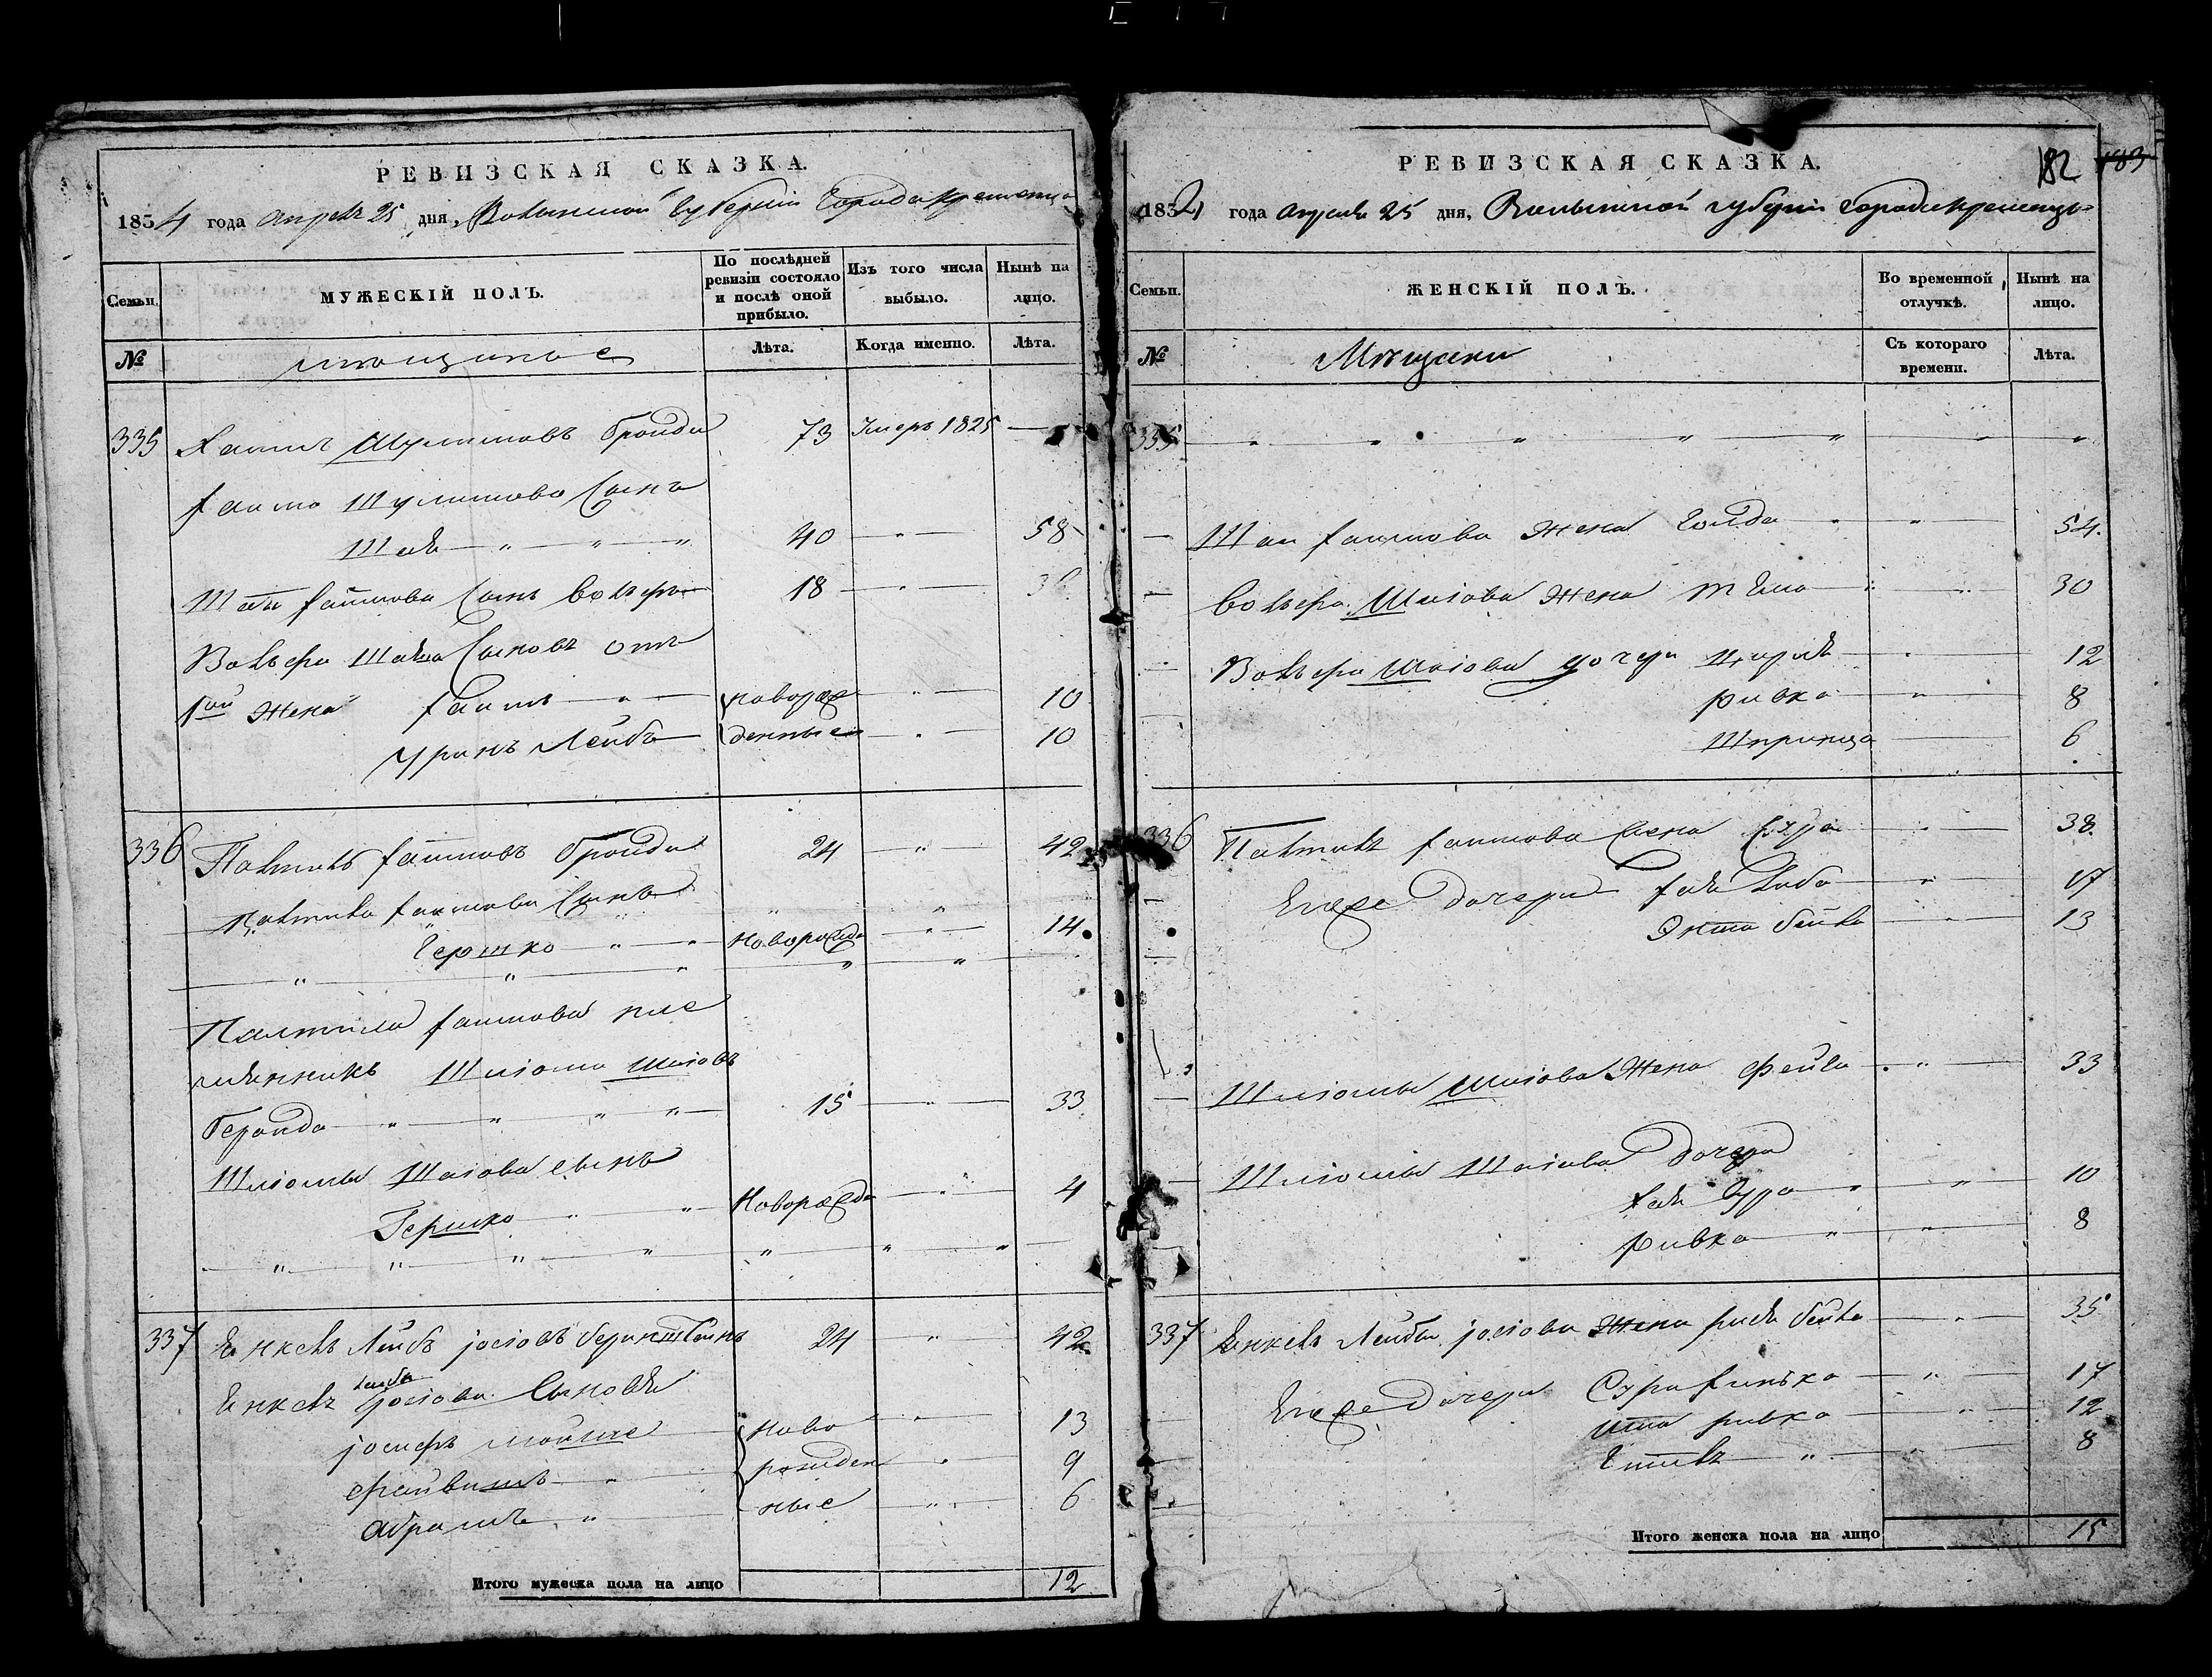 РЕВИЗСКАЯ СКАЗКА.
1854 года апреля 25 дня, Волынской Губернии Города Кременца
Семьи.
МУЖЕСКІЙ ПОЛЪ.
По послѣдней ревизіи состояло и послѣ оной прибыло.
Изъ того числа выбыло.
Нынѣ на лицо.
№
мещане
Лѣта.
Когда именно.
Лѣта.
335 Хаимъ Шулимовъ 73 Умеръ 1825 —
Хаима Шулимова Сынъ
Шая — " — " — " 40 — " — 58
Шаи Хаимова Сынъ Вольфъ 18 — " —
Вольфа Шаева Сыновъ отъ
1ой Жены Хаимъ — " — новорож — " — 10
Уринъ Лейба — денные — " — 10
336 Пальтиель Хаимовъ 24 — " — 42
Пальтиеля Хаимова Сынъ
Гершко — " — " Новорожде — " — 14
Палтиеля Хаимова пле
мянникъ Шлiома Шаiовъ
" — " — " 15 — " — 33
Шлiомы Шаiова сынъ
Гершко — " — " Новорожде — " — 4
337 Енкель Лейбъ Iосiовъ Беринштейнъ 24 " 42
Лейба
Енкель Iосiова Сыновья
Iосифъ Мошке Ново — " — 13
Файвишъ — " рожден — " — 9
Абрамъ — " ные — " — 6
Итого мужеска пола на лицо 12
РЕВИЗСКАЯ СКАЗКА.
182 183
1854 года апреля 25 дня, Волынской губерніи Города Кременца
Семьи.
ЖЕНСКІЙ ПОЛЪ.
Во временной отлучкѣ.
Нынѣ на лицо.
№
Мещанки
Съ котораго времени.
Лѣта.
335 — " — " — " — " — " — " — "
— Шаи Хаимова Жена Голда — " — 54.
— Вольфа Шаiова Жена — " — 30
— Вольфа Шаiова дочери — " — 12
Ривка — " — 8
Шпринца — 6
336 Пальтиеля Хаимова Жена Сура — " — 38
— Егоже дочери Хая Либа — " — 17
Энта Бейла — " — 13
— Шлiомы Шаiова Жена Фейга — " — 33
— Шлiомы Шаiова дочери
Хая Сура — " — " — 10
Ривка — " — " — 8
337 Енкель Лейбы Iосiова Жена Рися Бейла — " — 35
— Егоже Дочери Сура Хинька — " — 17
Ита Ривка — " — 12
— " — 8
Итого женска пола на лицо 15